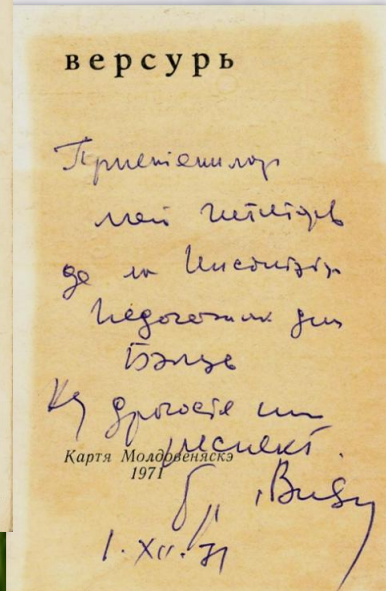 версурь
Приетенилор
мей
де ла Институтул
Педагожик дин
Бэлць
Ку драгосте ши
респект.
Картя Молдовеняскэ
1971
Виеру
1. XII. 71